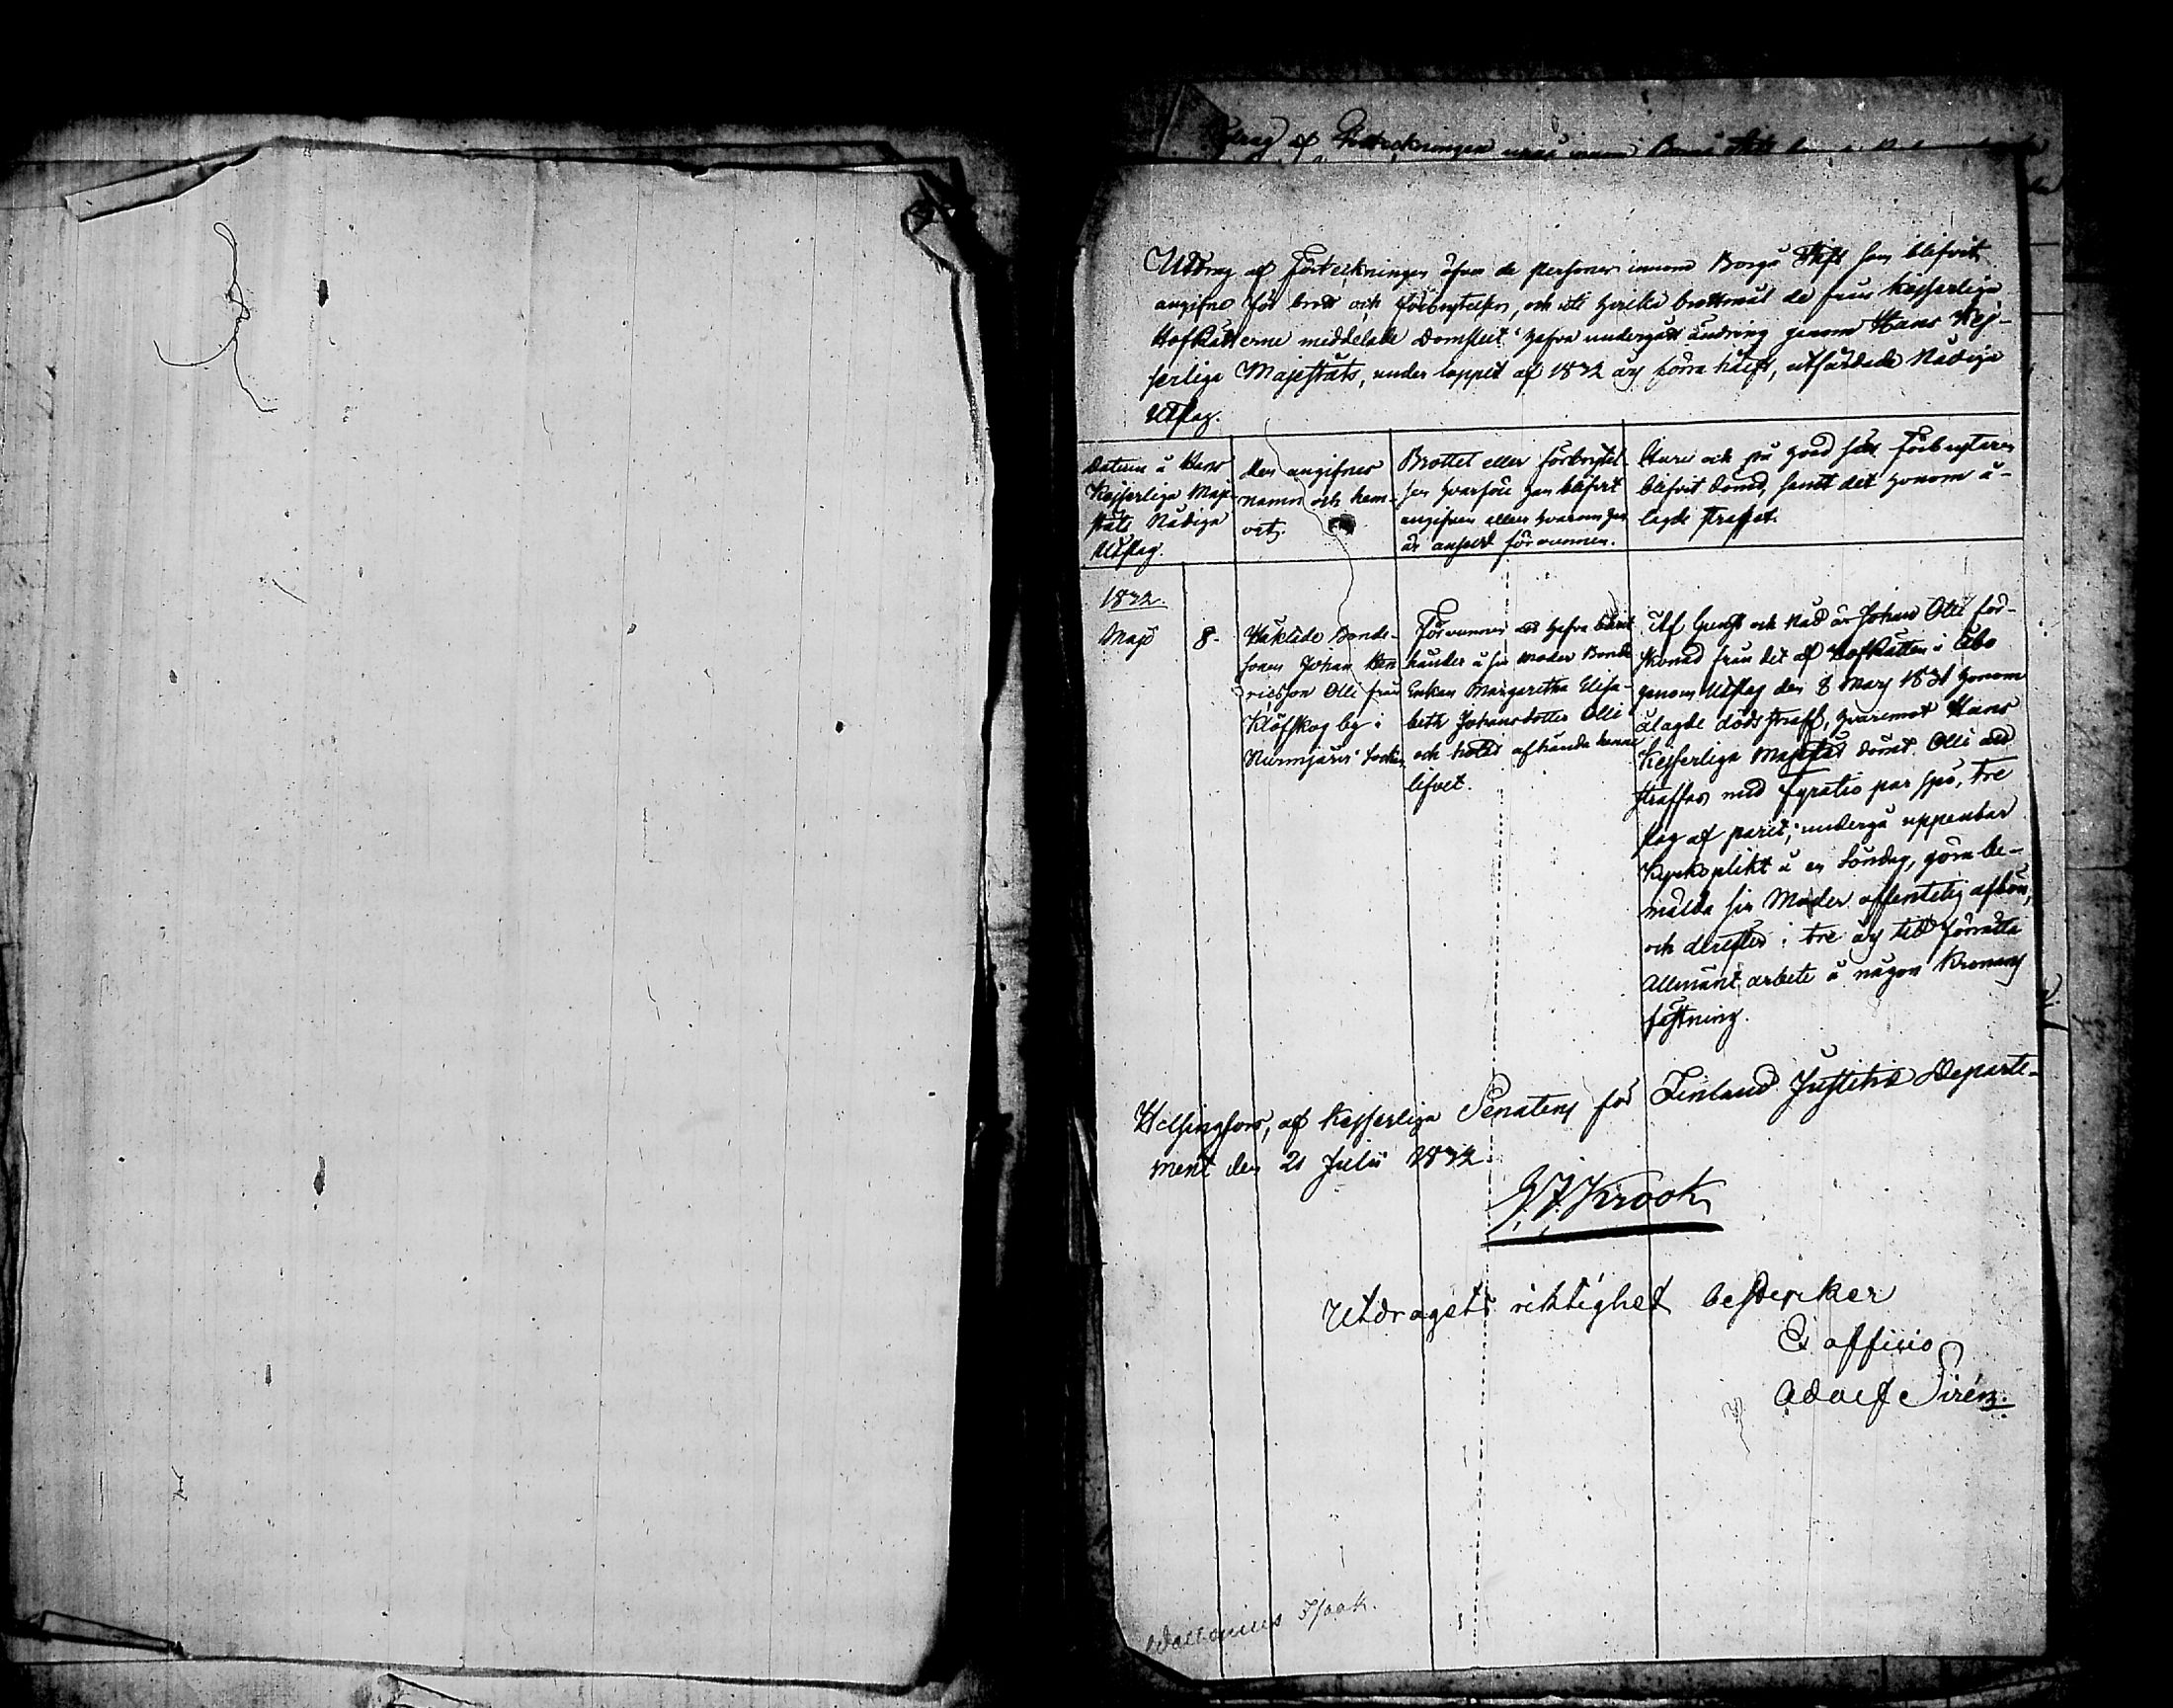 Utdrag af Förteckningen öfver de Personer innom Borgå Stift som blifvit
angifne för brott och förbrytelser, och uti hvilka brottmål de från Kejserliga
Hofrätterne meddelade Domslut hafva undergått ändring genom Hans Kej-
serliga Majestäts, under loppet af 1832 års förra hälft, utfärdade Nådiga
Utslag.
Datum å Hans
Kejserliga Maje-
stäts Nådiga
Utslag.
Den angifnes
namn och hem-
ort.
Brottet eller förbrytel-
sen hvarföre han blifvit
angifven eller hvarom han
är ansedd förvunnen.
Huru och på hvad sätt Förbrytaren
blifvit dömd, samt det honom å-
lagde straffet.
1832.
Maji 8.
Häktade Bonde-
sonen Johan Hen-
ricsson Olli från
Klöfskog by i
Nurmijärvi Socken
Förvunnen att hafva burit
händer å sin Moder Bonde
Enkan Margaretha Elisa-
beth Johansdotter Olli
och hotat afhända henne
lifvet.
Af Gunst och Nåd är Johan Olli för-
skonad från det af Hofrätten i Åbo
genom Utslag den 8 Mars 1831 honom
ålagde dödsstraff, hvaremot Hans
Kejserliga Majestät dömt Olli att
straffas med fyratio par spö, tre
slag af paret, undergå uppenbar
Kyrkoplikt å en Söndag, göra be-
mälda sin Moder offentelig afbön,
och derefter i tre års tid förrätta
Allmänt arbete å någon Kronans
fästning.
Helsingfors, af Kejserliga Senatens för Finland Justitiæ Departe-
ment den 21 Julii 1832
Krook
Utdragets riktighet bestyrker
Ex officio
Adolf Sirén.